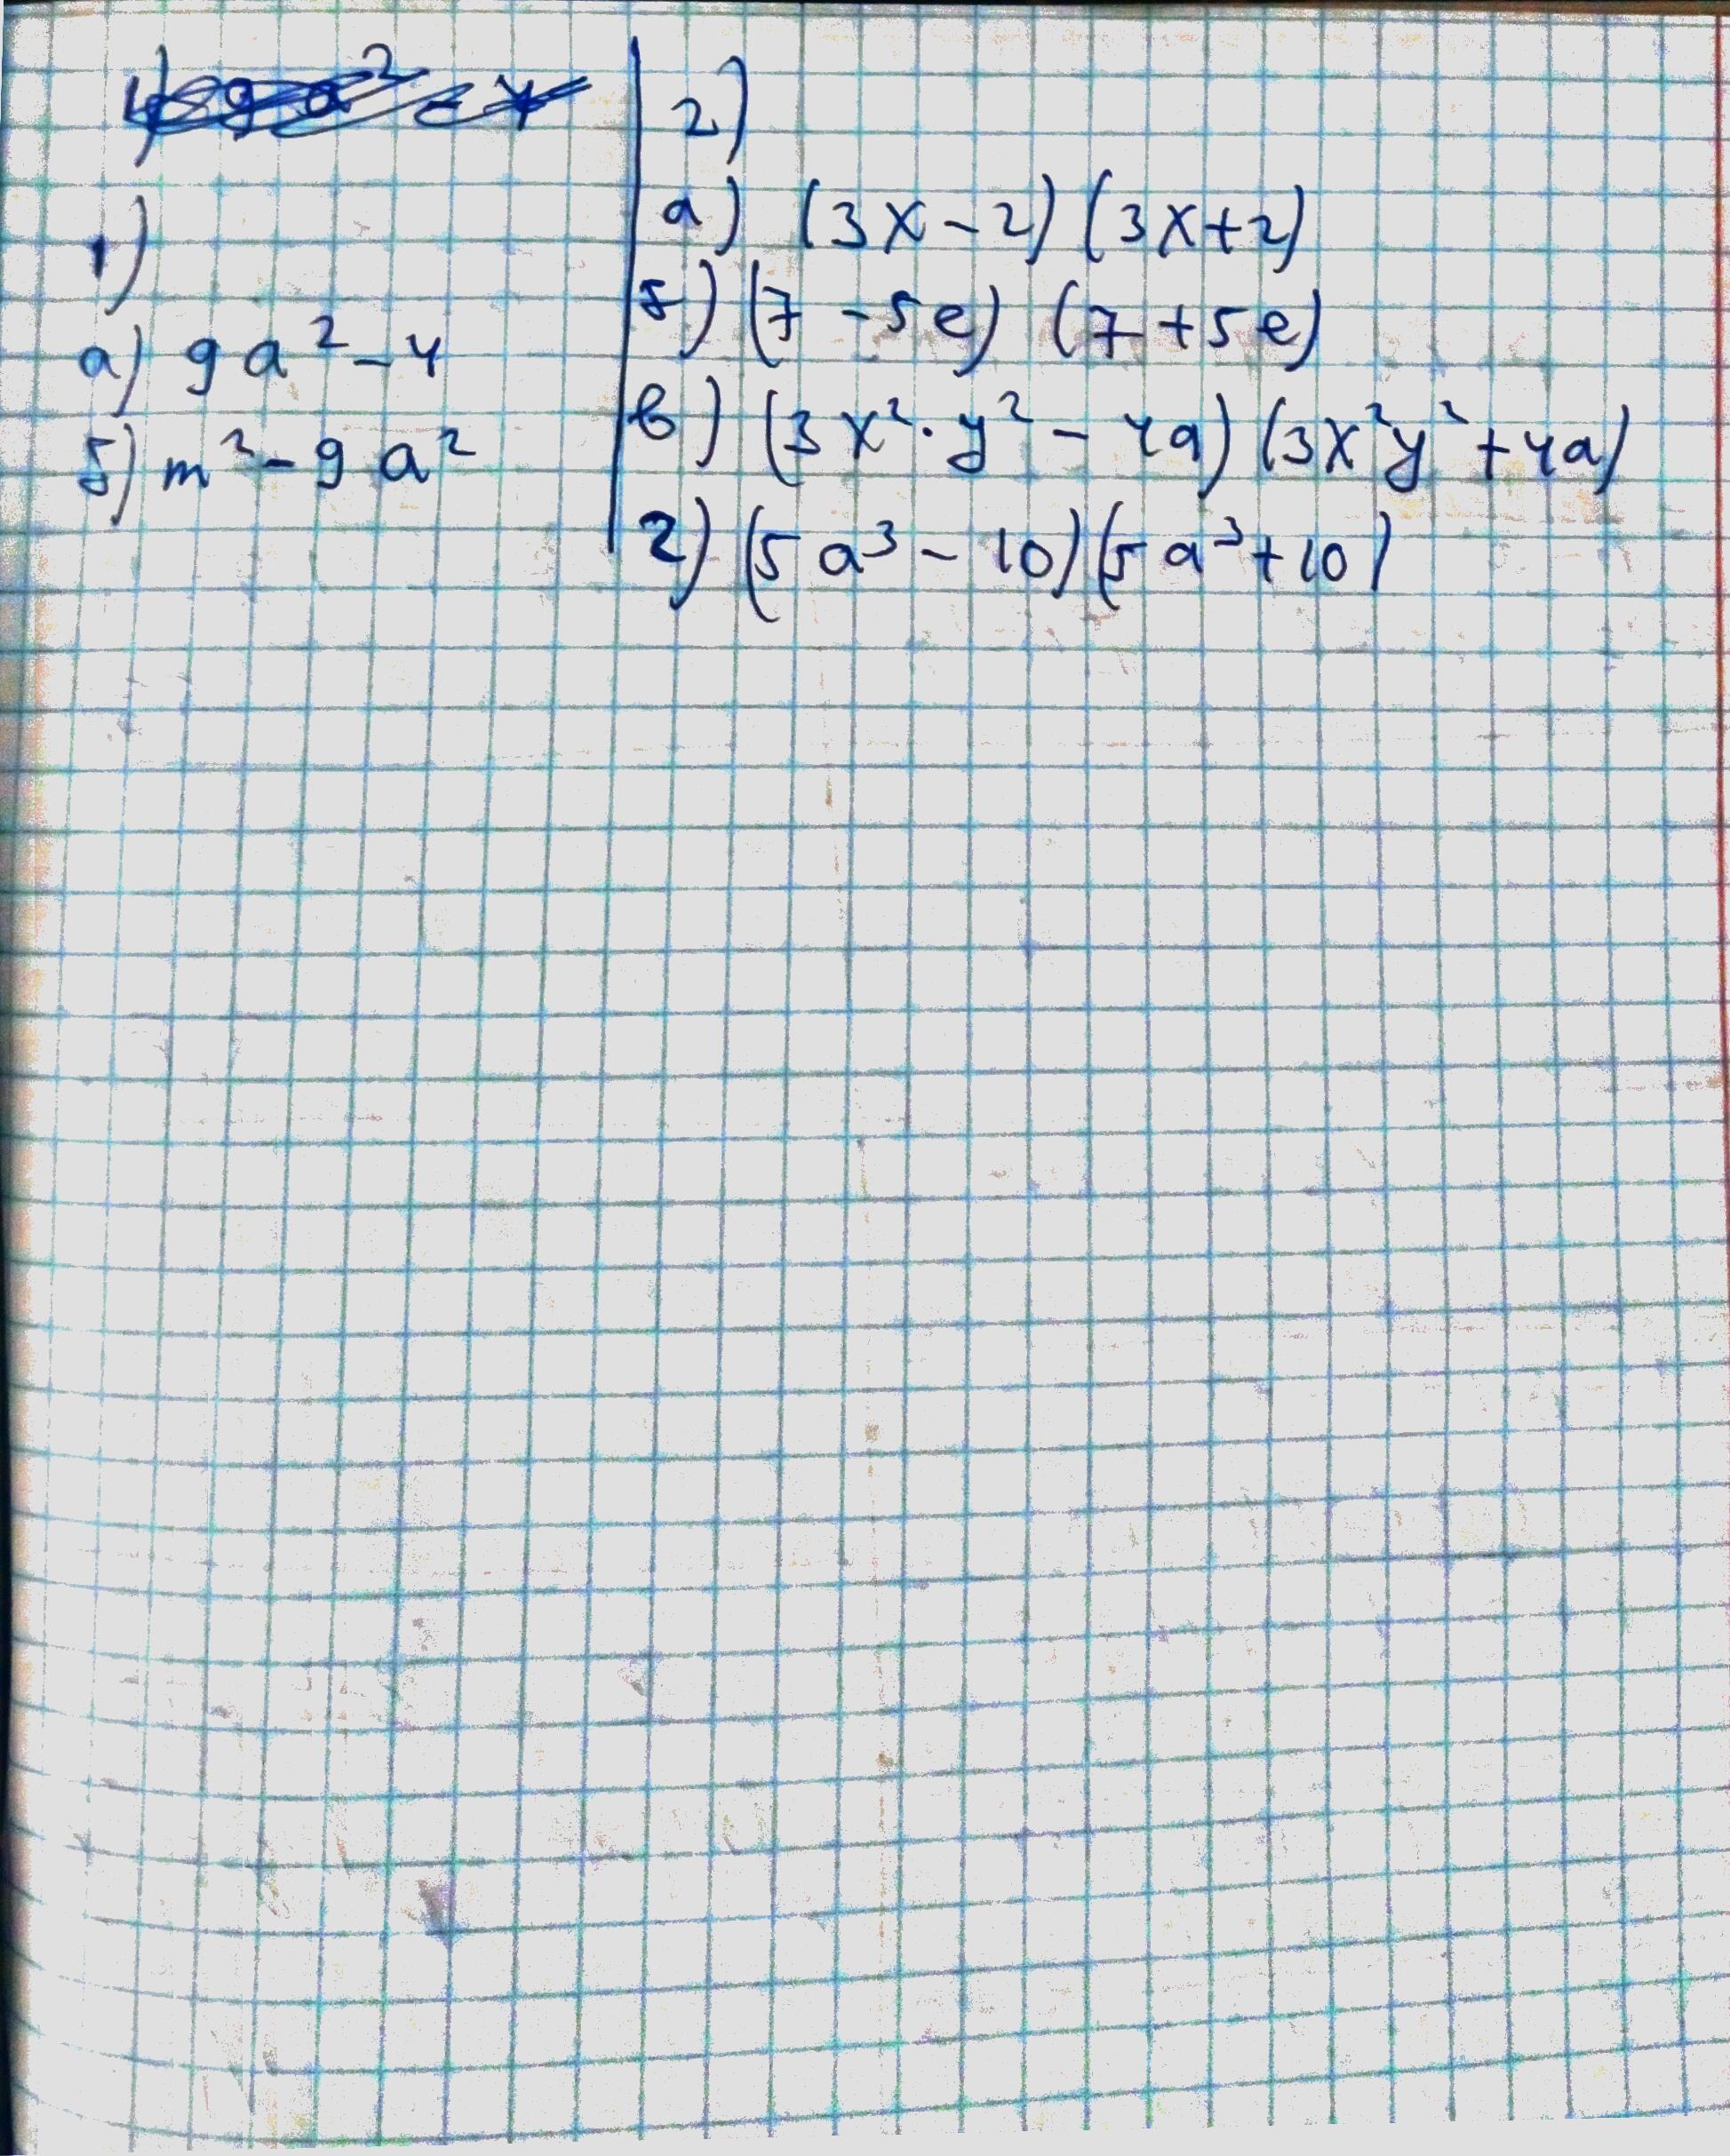 1)
а) 9a² - 4
б) m² - 9a²
2)
а) (3x - 2) (3x + 2)
б) (7 - 5e) (7 + 5e)
в) (3x² · y² - 4a) (3x²y² + 4a)
г) (5a³ - 10) (5a³ + 10)